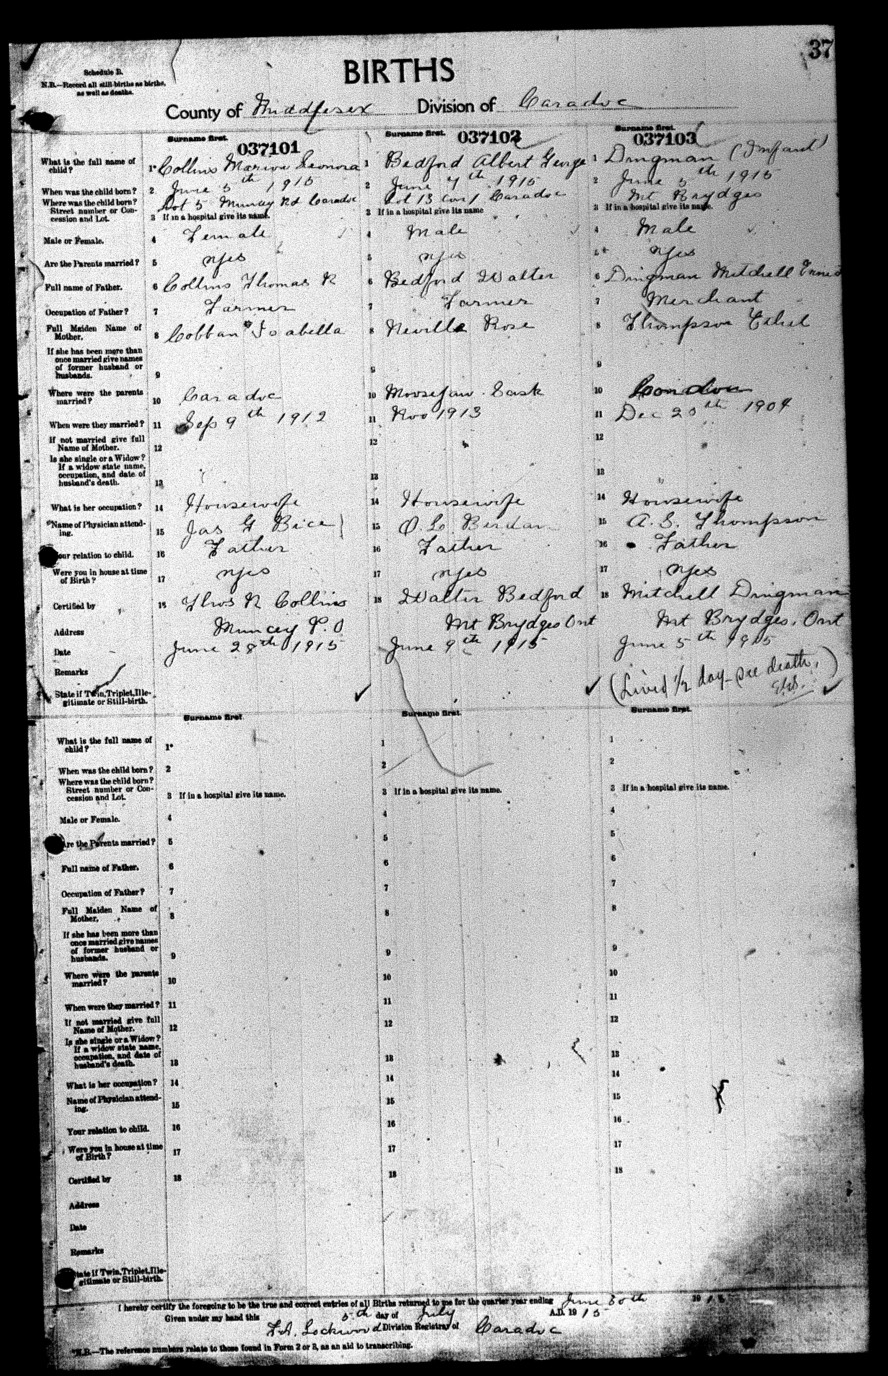 37
Schedule B.
N.B.—Record all still-births as births, as well as deaths.
BIRTHS
County of Middlesex Division of Caradoc
Surname first. Surname first. Surname first.
037101 037102 037103
What is the full name of child? 1* Collins Leonora 1 Bedford Albert George 1 Dingman (Infant)
When was the child born? 2 June 5th 1915 2 June 7th 1915 2 June 5th 1915
Where was the child born? Street number or Concession and Lot. Lot 5 Muncey Rd Caradoc Lot 13 Con 1 Caradoc Mt Brydges
3 If in a hospital give its name. 3 If in a hospital give its name 3 If in a hospital give its name.
Male or Female. 4 Female 4 Male 4 Male
Are the Parents married? 5 yes 5 yes 5 yes
Full name of Father. 6 Collins Thomas R 6 Bedford Walter 6 Dingman Mitchell
Occupation of Father? 7 Farmer 7 Farmer 7 Merchant
Full Maiden Name of Mother. 8 Cobban Isabella 8 Neville Rose 8 Thompson Ethel
If she has been more than once married give names of former husband or husbands. 9 9 9
Where were the parents married? 10 Caradoc 10 Moosejaw Sask 10 London
When were they married? 11 Sep 9th 1912 11 Nov 1913 11 Dec 1904
If not married give full Name of Mother. 12 12 12
Is she single or a Widow? If a widow state name, occupation, and date of husband's death. 13 13 13
What is her occupation? 14 Housewife 14 Housewife 14 Housewife
Name of Physician attending. 15 Jas G Bice 15 Berdan 15 A. S. Thompson
Your relation to child. 16 Father 16 Father 16 Father
Were you in house at time of Birth? 17 yes 17 yes 17 yes
Certified by 18 Thos R Collins 18 Walter Bedford 18 Mitchell Dingman
Address Muncey P.O Mt Brydges Ont Mt Brydges, Ont
Date June 28th 1915 June 9th 1915 June 5th 1915
Remarks (Lived 1/2 day – see death.)
State if Twin, Triplet, Illegitimate or Still-birth.
Surname first. Surname first. Surname first.
What is the full name of child? 1* 1 1
When was the child born? 2 2 2
Where was the child born? Street number or Concession and Lot. 3 If in a hospital give its name. 3 If in a hospital give its name. 3 If in a hospital give its name.
Male or Female. 4 4 4
Are the Parents married? 5 5 5
Full name of Father. 6 6 6
Occupation of Father? 7 7 7
Full Maiden Name of Mother, 8 8 8
If she has been more than once married give names of former husband or husbands. 9 9 9
Where were the parents married? 10 10 10
When were they married? 11 11 11
If not married give full Name of Mother. 12 12 12
Is she single or a Widow? If a widow state name, occupation, and date of husband's death. 13 13 13
What is her occupation? 14 14 14
Name of Physician attending. 15 15 15
Your relation to child. 16 16 16
Were you in house at time of Birth? 17 17 17
Certified by 18 18 18
Address
Date
Remarks
State if Twin, Triplet, Illegitimate or Still-birth.
I hereby certify the foregoing to be the true and correct entries of all Births returned to me for the quarter year ending June 30th 19
Given under my hand this 5th day of July A.D. 19 15
Lockwood Division Registry of Caradoc
*N.B.—The reference numbers relate to those found in Form 2 or 3, as an aid to transcribing.